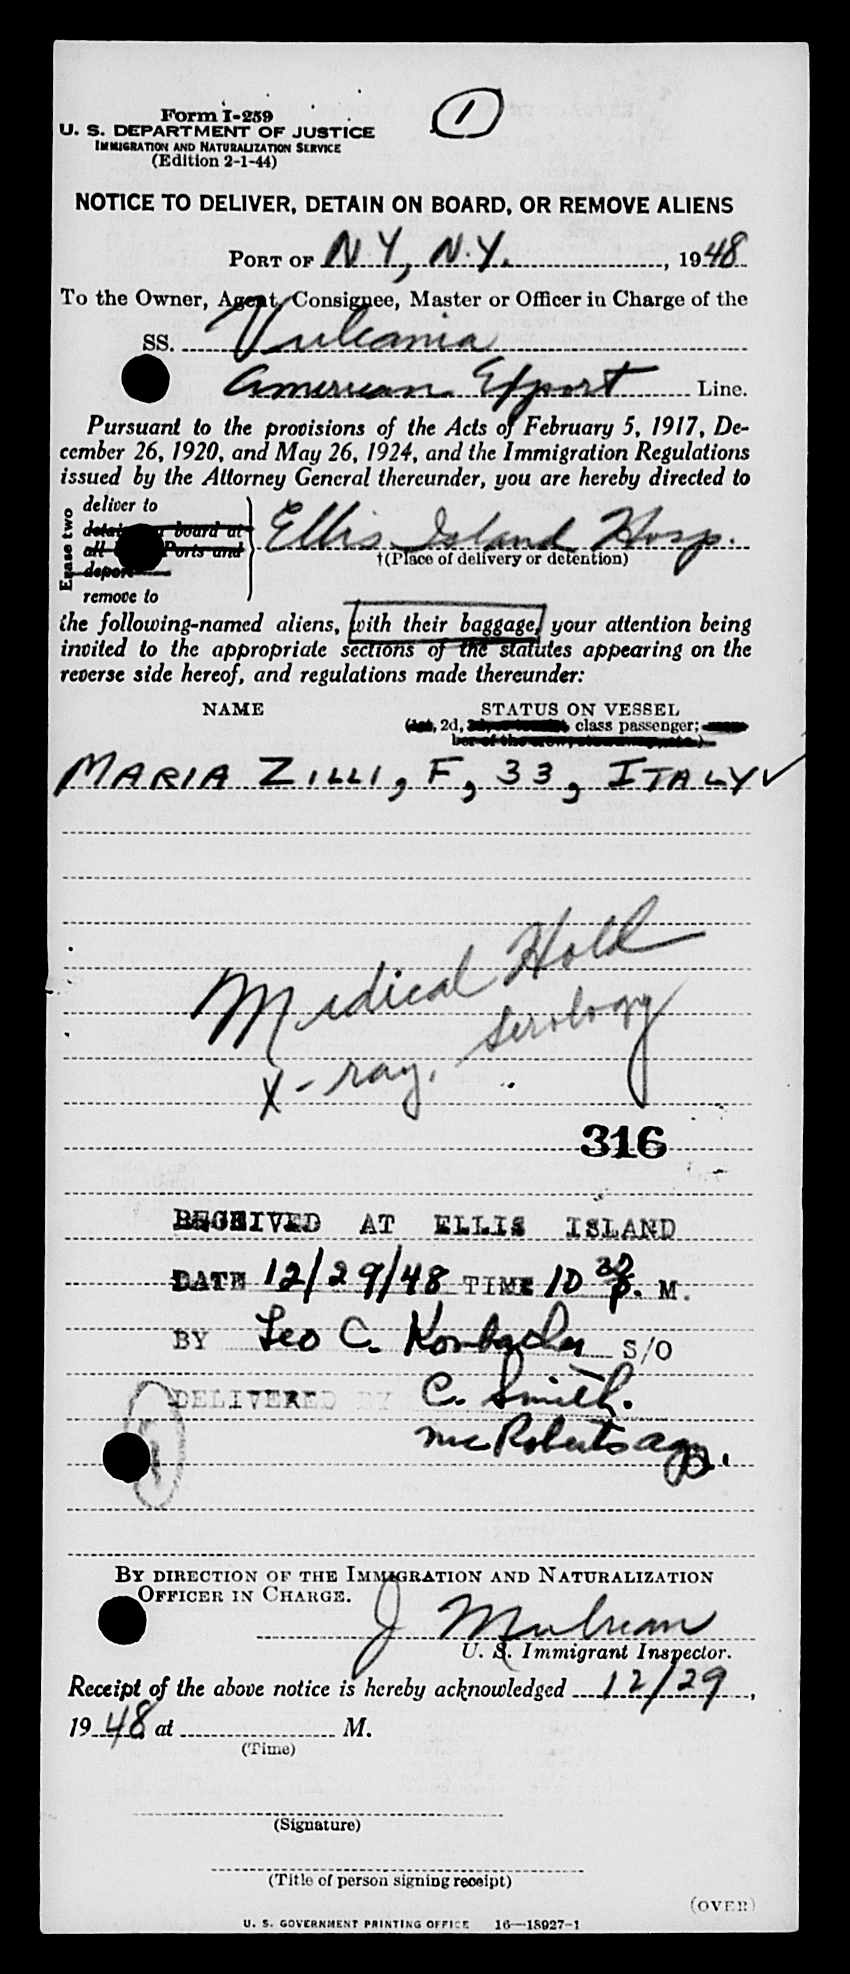 Form I-259
1
U. S. DEPARTMENT OF JUSTICE
IMMIGRATION AND NATURALIZATION SERVICE
(Edition 2-1-44)
NOTICE TO DELIVER, DETAIN ON BOARD, OR REMOVE ALIENS
PORT OF N Y, N.Y., 1948
To the Owner, Agent, Consignee, Master or Officer in Charge of the
SS. Vulcania
American Export Line.
Pursuant to the provisions of the Acts of February 5, 1917, De-
cember 26, 1920, and May 26, 1924, and the Immigration Regulations
issued by the Attorney General thereunder, you are hereby directed to
Erase two
deliver to
board at
all Ports and
remove to
Ellis Island Hosp.
†(Place of delivery or detention)
the following-named aliens, with their baggage, your attention being
invited to the appropriate sections of the statutes appearing on the
reverse side hereof, and regulations made thereunder:
NAME STATUS ON VESSEL
2d, class passenger;
MARIA ZILLI, F, 33, ITALY ✓
Medical Hold
X-ray, Serology
316
RECEIVED AT ELLIS ISLAND
DATE 12/29/48 TIME 10 30 P. M.
BY Leo C. S/O
DELIVERED BY C. Smith.
McRoberts agy.
BY DIRECTION OF THE IMMIGRATION AND NATURALIZATION
OFFICER IN CHARGE.
J
U. S. Immigrant Inspector.
Receipt of the above notice is hereby acknowledged 12/29,
1948 at M.
(Time)
(Signature)
(Title of person signing receipt)
(OVER)
U. S. GOVERNMENT PRINTING OFFICE 16—18927-1